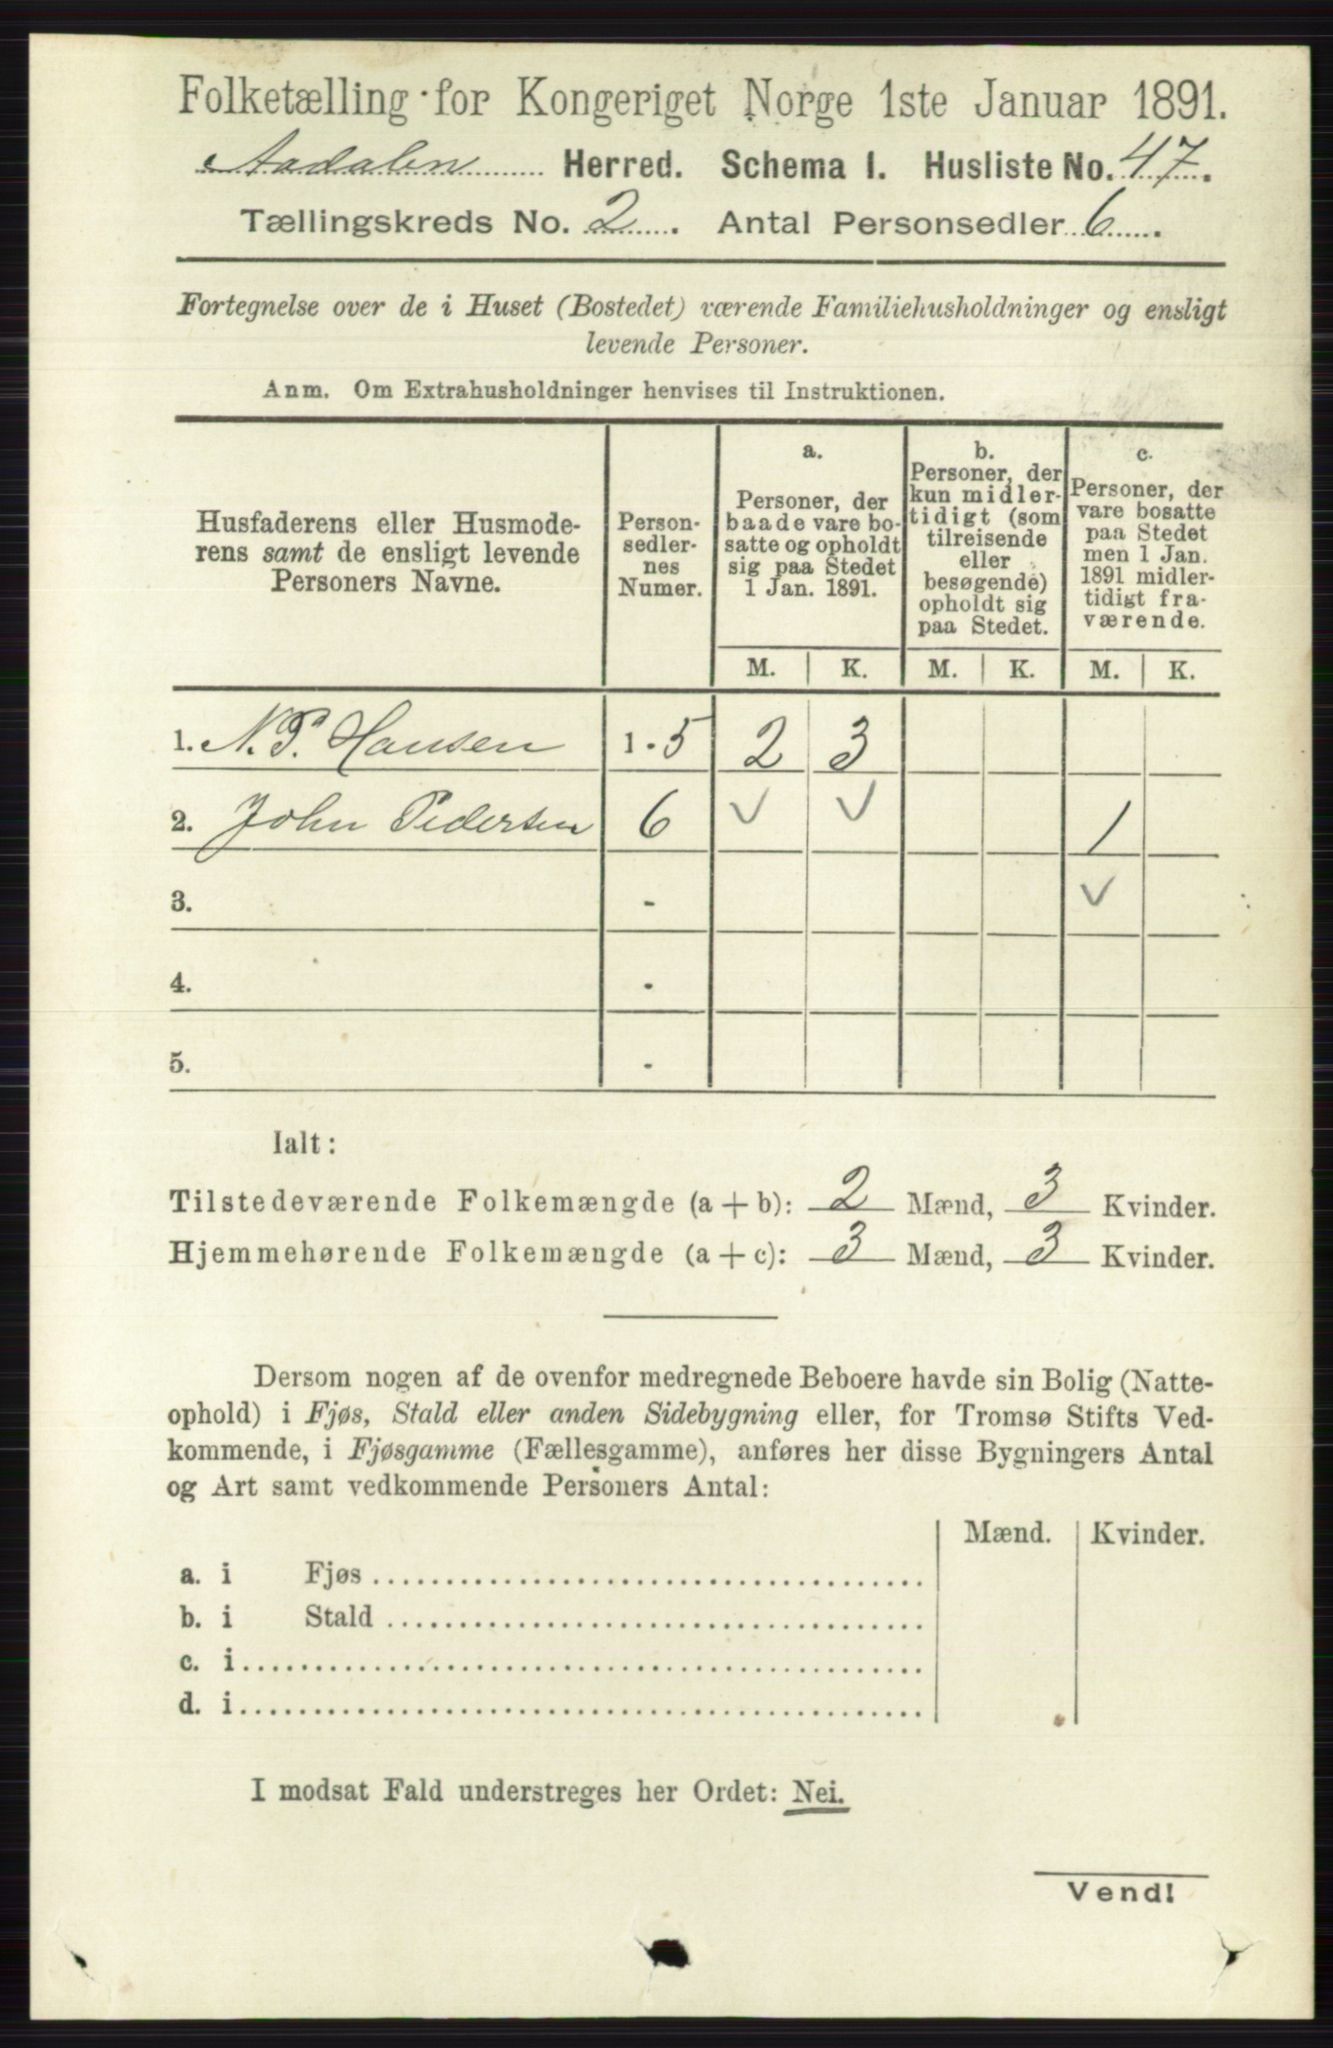 Folketælling for Kongeriget Norge 1ste Januar 1891.
Aadalen Herred. Schema I. Husliste No. 47.
Tællingskreds No. 2. Antal Personsedler 6.
Fortegnelse over de i Huset (Bostedet) værende Familiehusholdninger og ensligt
levende Personer.
Anm. Om Extrahusholdninger henvises til Instruktionen.
Husfaderens eller Husmode-
rens samt de ensligt levende
Personers Navne.
Person-
sedler-
nes
Numer.
a.
Personer, der
baade vare bo-
satte og opholdt
sig paa Stedet
1 Jan. 1891.
b.
Personer, der
kun midler-
tidigt (som
tilreisende
eller
besøgende)
opholdt sig
paa Stedet.
c.
Personer, der
vare bosatte
paa Stedet
men 1 Jan.
1891 midler-
tidigt fra-
værende.
M. K. M. K. M. K.
1. N. P. Hansen 1-5 2 3
2. John Pedersen 6 ✓ ✓ 1
3. - ✓
4. -
5. -
Ialt:
Tilstedeværende Folkemængde (a + b): 2 Mænd, 3 Kvinder.
Hjemmehørende Folkemængde (a + c): 3 Mænd, 3 Kvinder.
Dersom nogen af de ovenfor medregnede Beboere havde sin Bolig (Natte-
ophold) i Fjøs, Stald eller anden Sidebygning eller, for Tromsø Stifts Ved-
kommende, i Fjøsgamme (Fællesgamme), anføres her disse Bygningers Antal
og Art samt vedkommende Personers Antal:
Mænd. Kvinder.
a. i Fjøs
b. i Stald
c. i
d. i
I modsat Fald understreges her Ordet: Nei.
Vend!